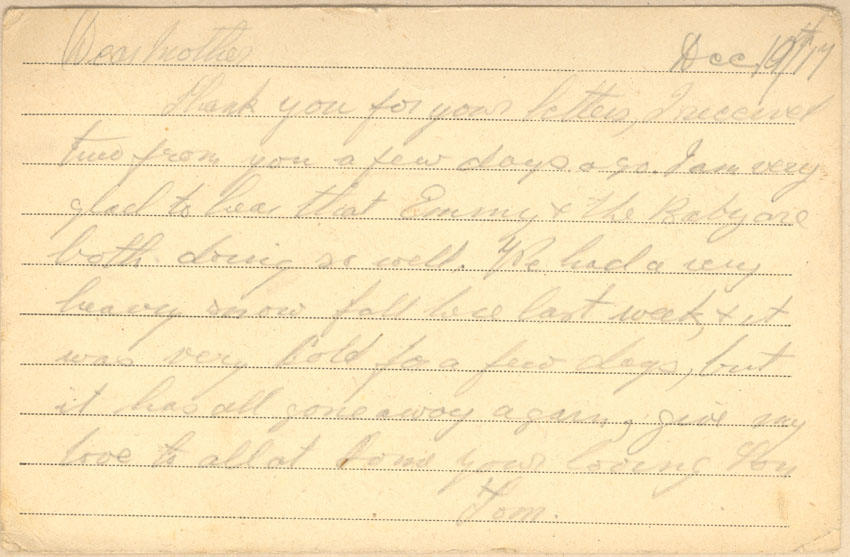 Dear Mother Dec 19th/17
Thank you for your letters, I received
two from you a few days ago. I am very
glad to hear that Emmy & the Baby are
both doing so well. We had a very
heavy snow fall here last week, & it
was very Cold for a few days, but
it has all gone away again, give my
love to all at home your loving Son
Tom.